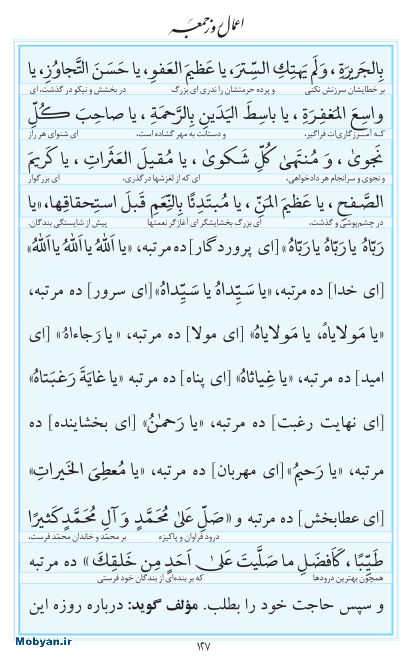 اعمال روز جمعه
بِالجَريرَةِ ، وَلَم يَهتِكِ السِّترَ، يا عَظيمَ العَفوِ، يا حَسَنَ التَّجاوُزِ، يا
بر خطایشان سرزنش نکنی و پرده حرمتشان را ندری ای بزرگ در بخشش و نیکو در گذشت، ای
واسِعَ المَغفِرَةِ ، يا باسِطَ اليَدَينِ بِالرَّحمَةِ ، يا صاحِبَ كُلِّ
که آمرزگاری‌ات فراگیر، و دستانت به مهر گشاده است. ای شنوای هر راز
نَجوىٰ ، وَ مُنتَهىٰ كُلِّ شَكوىٰ ، يا مُقيلَ العَثَراتِ ، يا كَريمَ
و نجوی و سرانجام هر دادخواهی، ای که از لغزشها درگذری، ای بزرگوار
الصَّفحِ ، يا عَظيمَ المَنِّ ، يا مُبتَدِئًا بِالنِّعَمِ قَبلَ استِحقاقِها، «يا
در چشم‌پوشی و گذشت، ای بزرگ بخشایشگر ای آغازگر نعمتها پیش از شایستگی بندگان.
رَبّاهُ يا رَبّاهُ يا رَبّاهُ» [ای پروردگار] ده مرتبه، «يا اَللهُ يا اَللهُ يا اَللهُ»
[ای خدا] ده مرتبه، «يا سَيِّداهُ يا سَيِّداهُ» [ای سرور] ده مرتبه،
«يا مَولاياهُ، يا مَولاياهُ» [ای مولا] ده مرتبه، «يا رَجاءاهُ» [ای
امید] ده مرتبه، «يا غِياثاهُ» [ای پناه] ده مرتبه «يا غايَةَ رَغبَتاهُ»
[ای نهایت رغبت] ده مرتبه، «يا رَحمٰنُ» [ای بخشاینده] ده
مرتبه، «يا رَحيمُ» [ای مهربان] ده مرتبه، «يا مُعطِيَ الخَيراتِ»
[ای عطابخش] ده مرتبه و «صَلِّ عَلىٰ مُحَمَّدٍ وَ آلِ مُحَمَّدٍ كَثيرًا
درود فراوان و پاکیزه بر محمّد و خاندان محمّد فرست.
طَيِّبًا ، كَأَفضَلِ ما صَلَّيتَ عَلىٰ اَحَدٍ مِن خَلقِكَ » ده مرتبه
همچون بهترین درودها که بر بنده‌ای از بندگان خود فرستی
و سپس حاجت خود را بطلب. مؤلف گوید: درباره روزه این
۱۲۷
Mobyan.ir